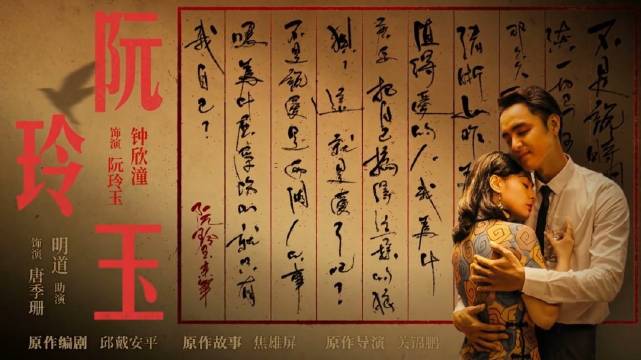 阮玲玉
钟欣潼
饰演 阮玲玉
明道 助演
饰演 唐季珊
不是說時間
值得愛的人 我為什
把自己搞得這樣的狼
狽？這就是愛了吧？
不是說愛是兩個人的事
嗎 為什麼 的就只有
我自己？
原作编剧 邱戴安平 原作故事 焦雄屏 原作导演 关锦鹏